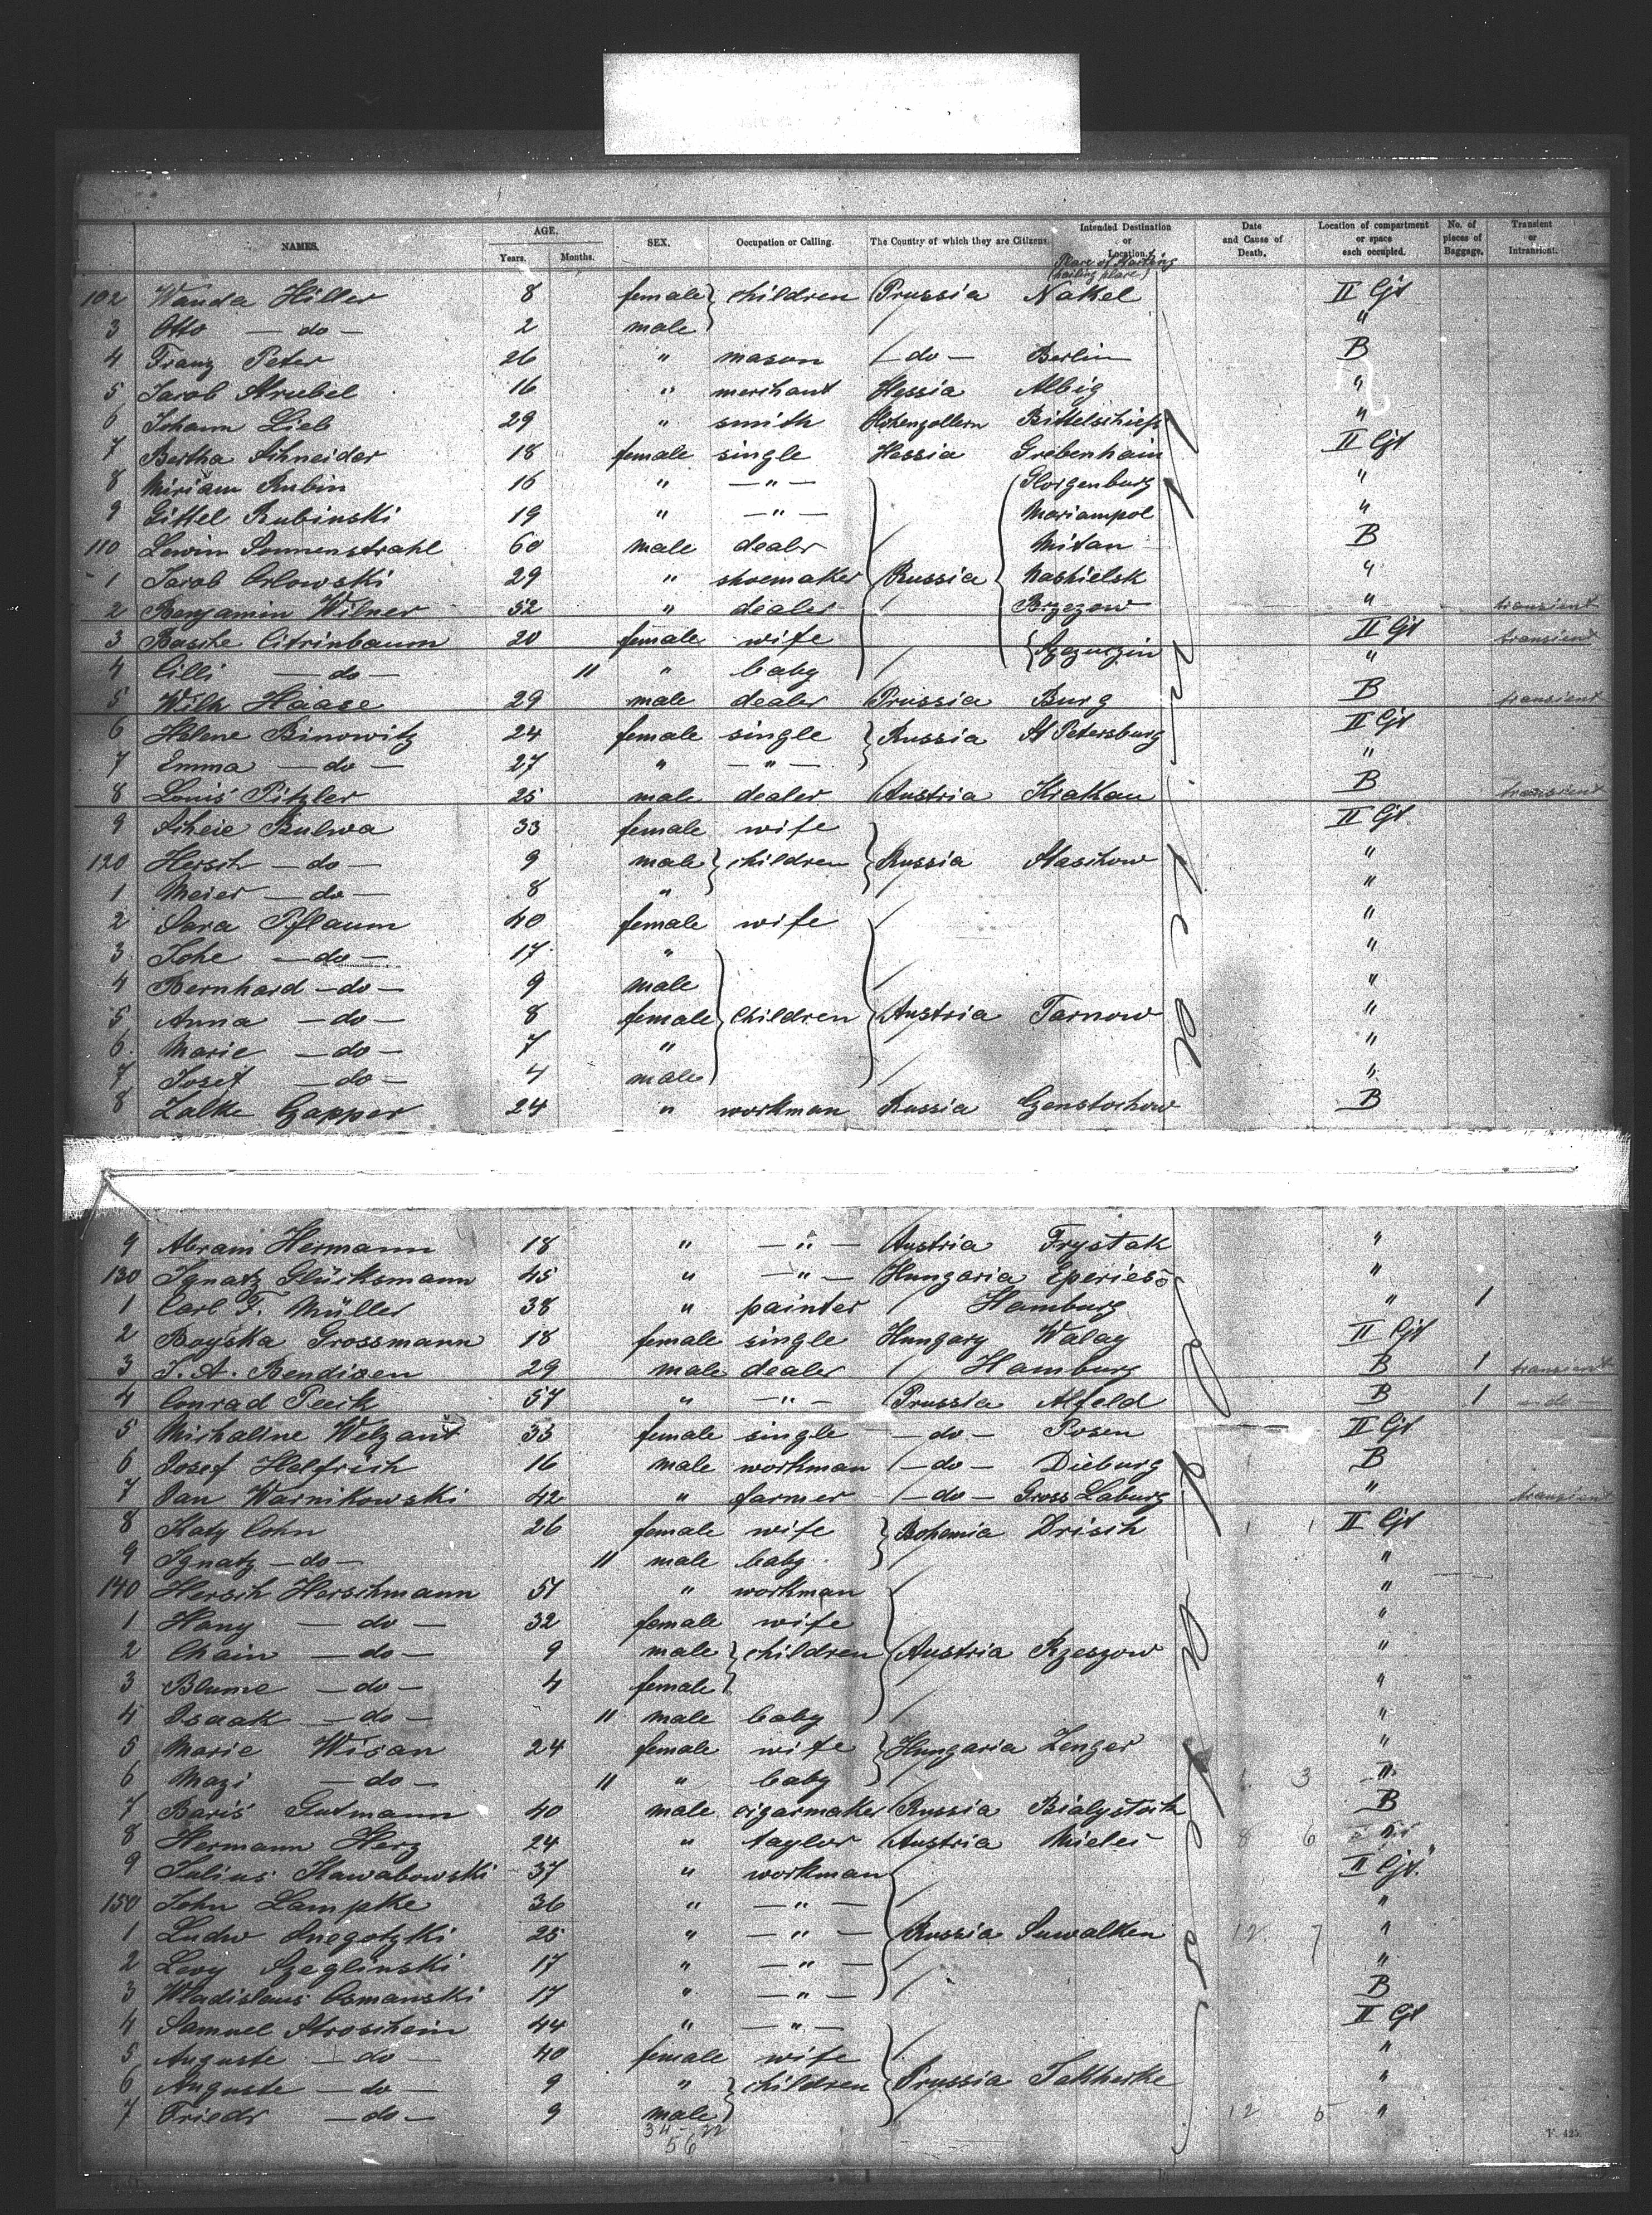 NAMES. AGE. Years. Months. SEX. Occupation or Calling. The Country of which they are Citizens. Intended Destination or Location. Date and Cause of Death. Location of compartment or space each occupied. No. of pieces of Baggage. Transient or Intransient.
Place of starting
(hailing place)
102 Wanda Hiller 8 female } children Prussia Nakel II Cjt
3 Otto — do — 2 male "
4 Franz Peter 26 " mason — do — Berlin B
5 Jacob Strubel 16 " merchant Hessia Albig "
6 Johann Lieb 29 " smith Hohenzollern "
7 Bertha Schneider 18 female single Hessia Grebenhain II Cjt
8 Miriam Rubin 16 " — " — "
9 Gittel Rubinski 19 " — " — Mariampol "
110 Lewin Sonnenstrahl 60 male dealer Mitau B
1 Jacob Orlowski 29 " shoemaker } Russia { Nashielsk "
2 Benjamin Wilner 52 " dealer Brzezow " transient
3 Basche Citrinbaum 20 female wife II Cjt transient
4 Cilli — do — 11 " baby "
5 Wilh Haase 29 male dealer Prussia Burg B transient
6 Helene Binowitz 24 female single } Russia St Petersburg II Cjt
7 Emma — do — 27 " — " — "
8 Louis Pitzler 25 male dealer Austria Krakau B transient
9 Scheie Bulwa 33 female wife II Cjt.
120 Hersch — do — 9 male } children } Russia Staschow "
1 Meier — do — 8 " "
2 Sara Pflaum 40 female wife "
3 — do — 17 " "
4 Bernhard — do — 9 male "
5 Anna — do — 8 female } children } Austria Tarnow "
6 Marie — do — 7 " "
7 Josef — do — 4 male "
8 Zalke Gapper 24 " workman Russia Czenstochow B
9 Abram Hermann 18 " — " — Austria Frystak "
130 Ignatz Glücksmann 45 " — " — Hungaria Eperies "
1 Carl F. Müller 38 " painter Hamburg " 1
2 Boyska Grossmann 18 female single Hungary Walay II Cjt
3 J. A. Bendixen 29 male dealer Hamburg B 1 transient
4 Conrad 57 " — " — Prussia Alfeld B 1 — do —
5 Michaline Welzant 33 female single — do — Posen II Cjt
6 Josef Helfrich 16 male workman — do — Dieburg B
7 Jan Warnikowski 42 " farmer — do — Gross Laburg " transient
8 Katy Cohn 26 female wife } Bohemia Drisch 1 1 II Cjt
9 Ignatz — do — 11 male baby "
140 Hersch Herschmann 51 " workman "
1 Hany — do — 32 female wife "
2 Chain — do — 9 male } children } Austria Rzeszow "
3 Blume — do — 4 female "
4 Isaak — do — 11 male baby "
5 Marie Wisan 24 female wife } Hungaria Zenger "
6 Mazi — do — 11 " baby 1 3 "
7 Baris Gutmann 40 male cigarmaker Russia Bialystock B
8 Hermann Herz 24 " taylor Austria Mielec 8 6 "
9 Julius Kawabowski 37 " workman II Cjt.
150 John Lampke 36 " — " — "
1 Ludw Snegotzki 25 " — " — } Russia Suwalken 12 7 "
2 Levy Szeglinski 17 " — " — "
3 Wladislaus Osmanski 17 " — " — B
4 Samuel Stroschein 44 " — " — II Cjt
5 Auguste — do — 40 female wife "
6 Auguste — do — 9 " } children } Prussia "
7 Friedr — do — 9 male 12 5 "
34 - 22
56